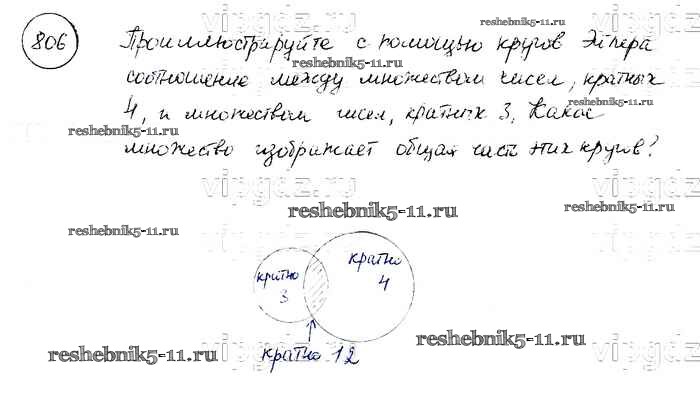 806 Проиллюстрируйте с помощью кругов Эйлера
reshebnik5-11.ru
reshebnik5-11.ru
соотношение между множеством чисел, кратных
4, и множеством чисел, кратных 3. Какое
reshebnik5-11.ru
reshebnik5-11.ru
множество изображает общая часть этих кругов?
vipgdz.ru
reshebnik5-11.ru
reshebnik5-11.ru
reshebnik5-11.ru
кратно
3
кратно
4
reshebnik5-11.ru
reshebnik5-11.ru
кратно 12